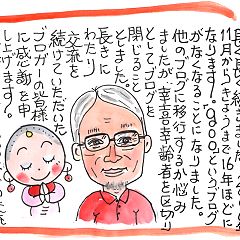 長く続
11月からきょうまで16年ほどに
なります！「goo」というブログ
がなくなることになりました。
他のブログに移行するか悩み
ましたが幸喜幸齢者を区切り
としてブログを
閉じること
としました。
長きに
わたり
交流を
続けていただいた
ブロガーの皆様
に感謝を申
し上げます。